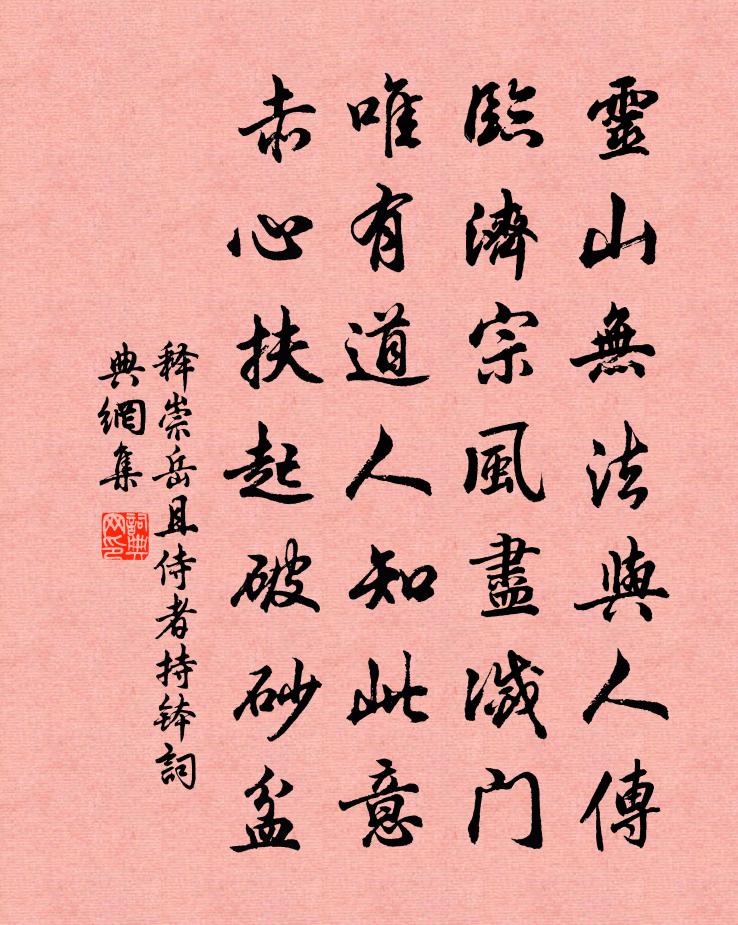 靈山無法與人傳
臨濟宗風盡滅門
唯有道人知此意
赤心扶起破砂盆
释崇岳且侍者持钵詞
典網集
詞典網印